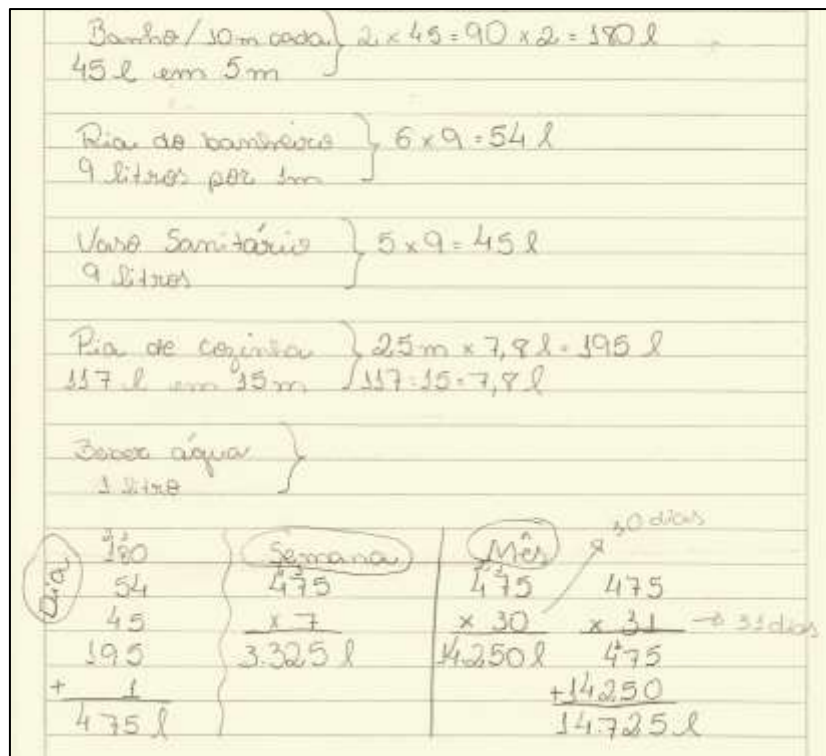 Banho / 10m cada } 2 x 45 = 90 x 2 = 180 l
45 l em 5m
Pia do banheiro } 6 x 9 = 54 l
9 litros por 1m
Vaso Sanitário } 5 x 9 = 45 l
9 litros
Pia de cozinha } 25m x 7,8 l = 195 l
117 l em 15m 117:15 = 7,8 l
Beber água }
1 litro
Dia
180
54
45
195
+ 1
475 l
Semana
475
x 7
3.325 l
Mês
30 dias
475
x 30
14.250 l
475
x 31 → 31 dias
475
+14250
14.725 l